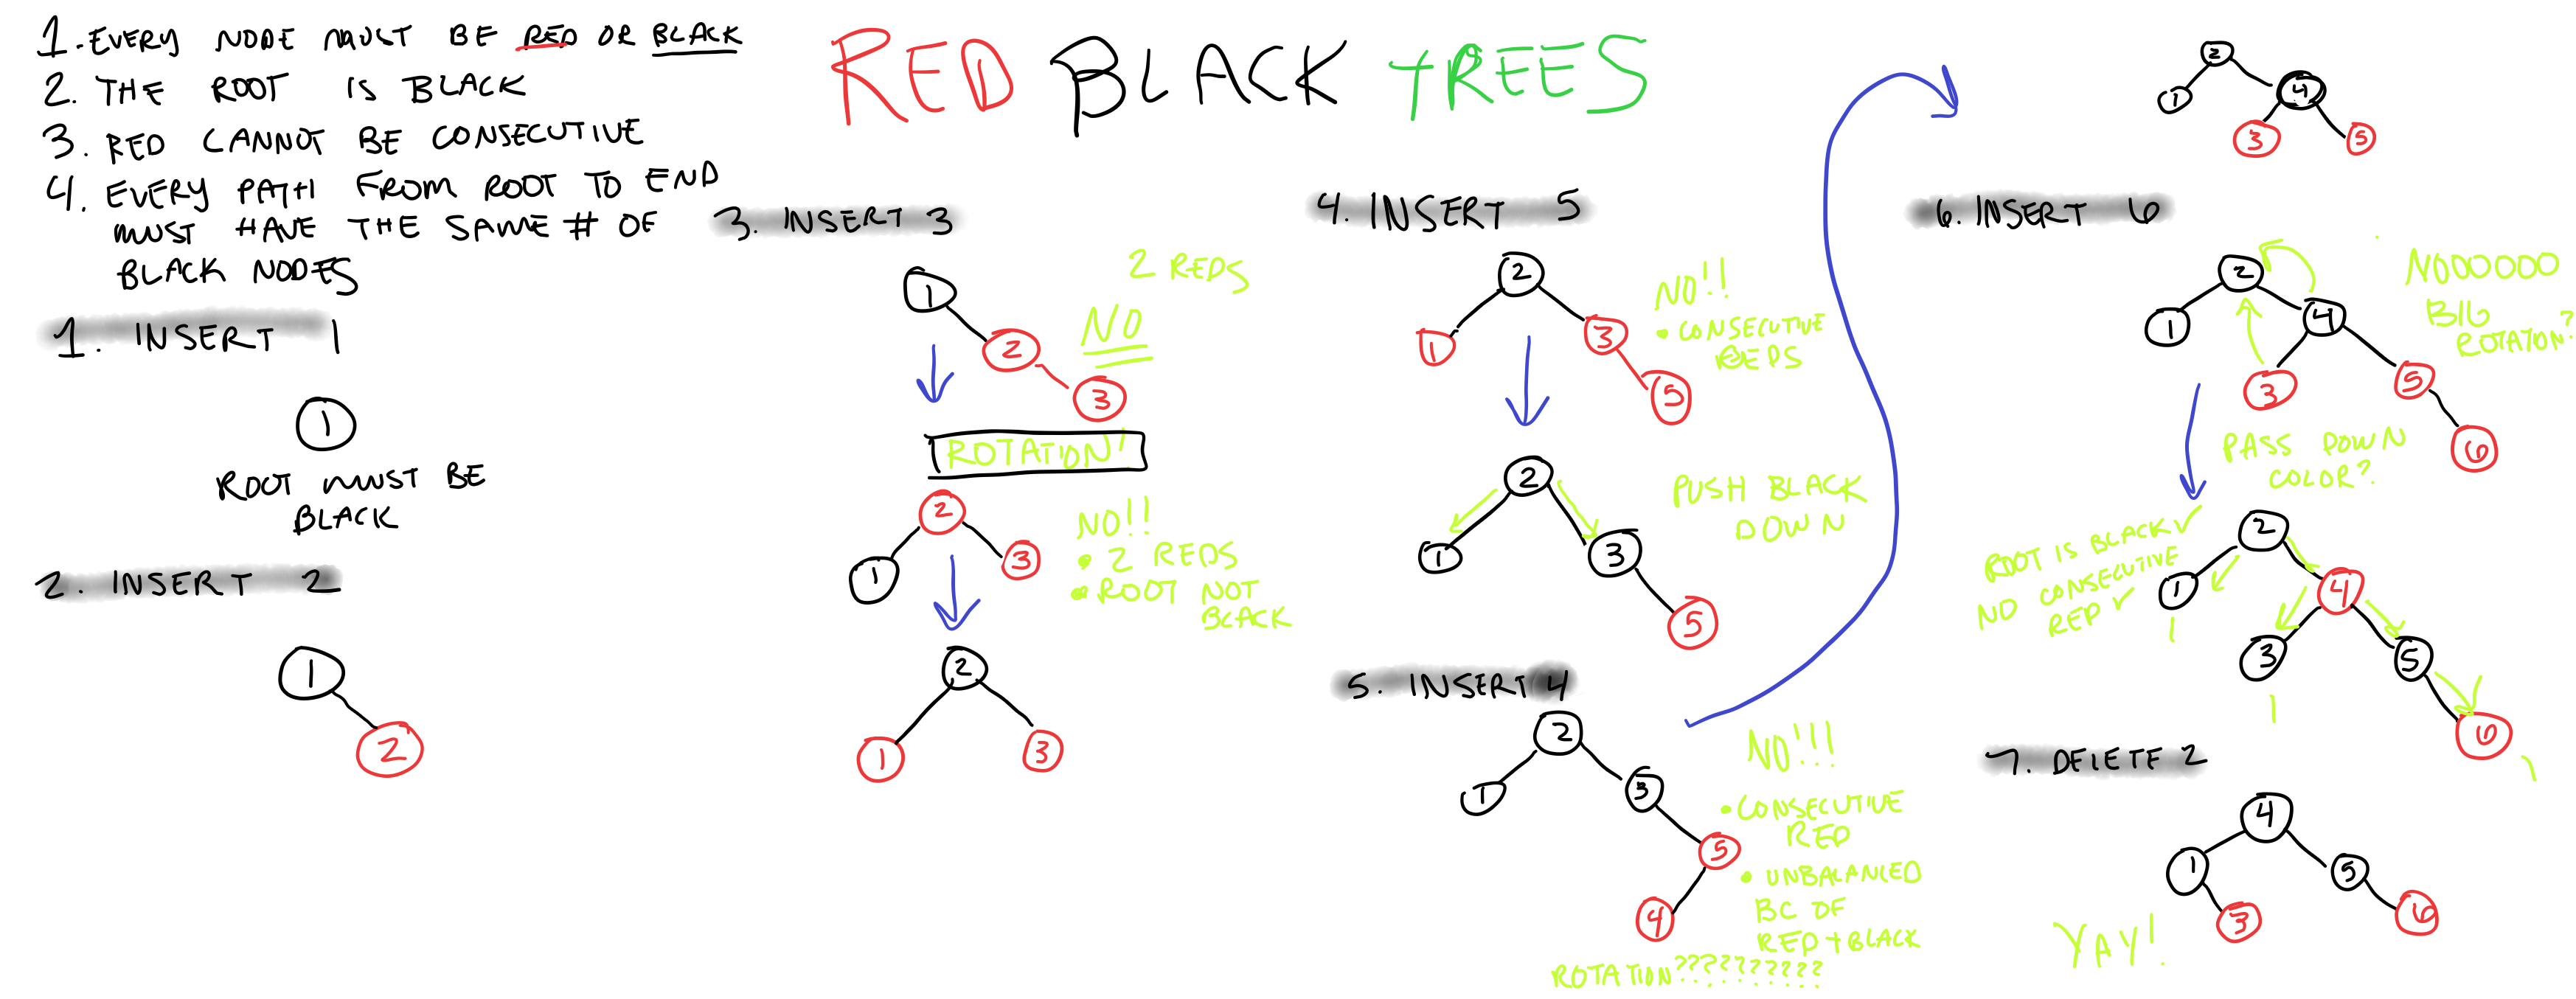 1. EVERY NODE MUST BE RED OR BLACK
2. THE ROOT IS BLACK
3. RED CANNOT BE CONSECUTIVE
4. EVERY PATH FROM ROOT TO END
MUST HAVE THE SAME # OF
BLACK NODES
RED BLACK TREES
1. INSERT 1
1
ROOT MUST BE
BLACK
2. INSERT 2
1
2
3. INSERT 3
1
2
3
2 REDS
NO
ROTATION!
2
1
3
NO!!
• 2 REDS
• ROOT NOT
BLACK
2
1
3
4. INSERT 5
2
1
3
5
NO!!
• CONSECUTIVE
REDS
2
1
3
5
PUSH BLACK
DOWN
5. INSERT 4
2
1
3
5
4
NO!!!
• CONSECUTIVE
RED
• UNBALANCED
BC OF
RED + BLACK
ROTATION??????????
2
1
4
3
5
6. INSERT 6
2
1
4
3
5
6
NOOOOOO
BIG
ROTATION?
PASS DOWN
COLOR?
ROOT IS BLACK ✓
NO CONSECUTIVE
RED ✓
2
1
4
3
5
6
1
1
1
7. DELETE 2
4
1
5
3
6
YAY!